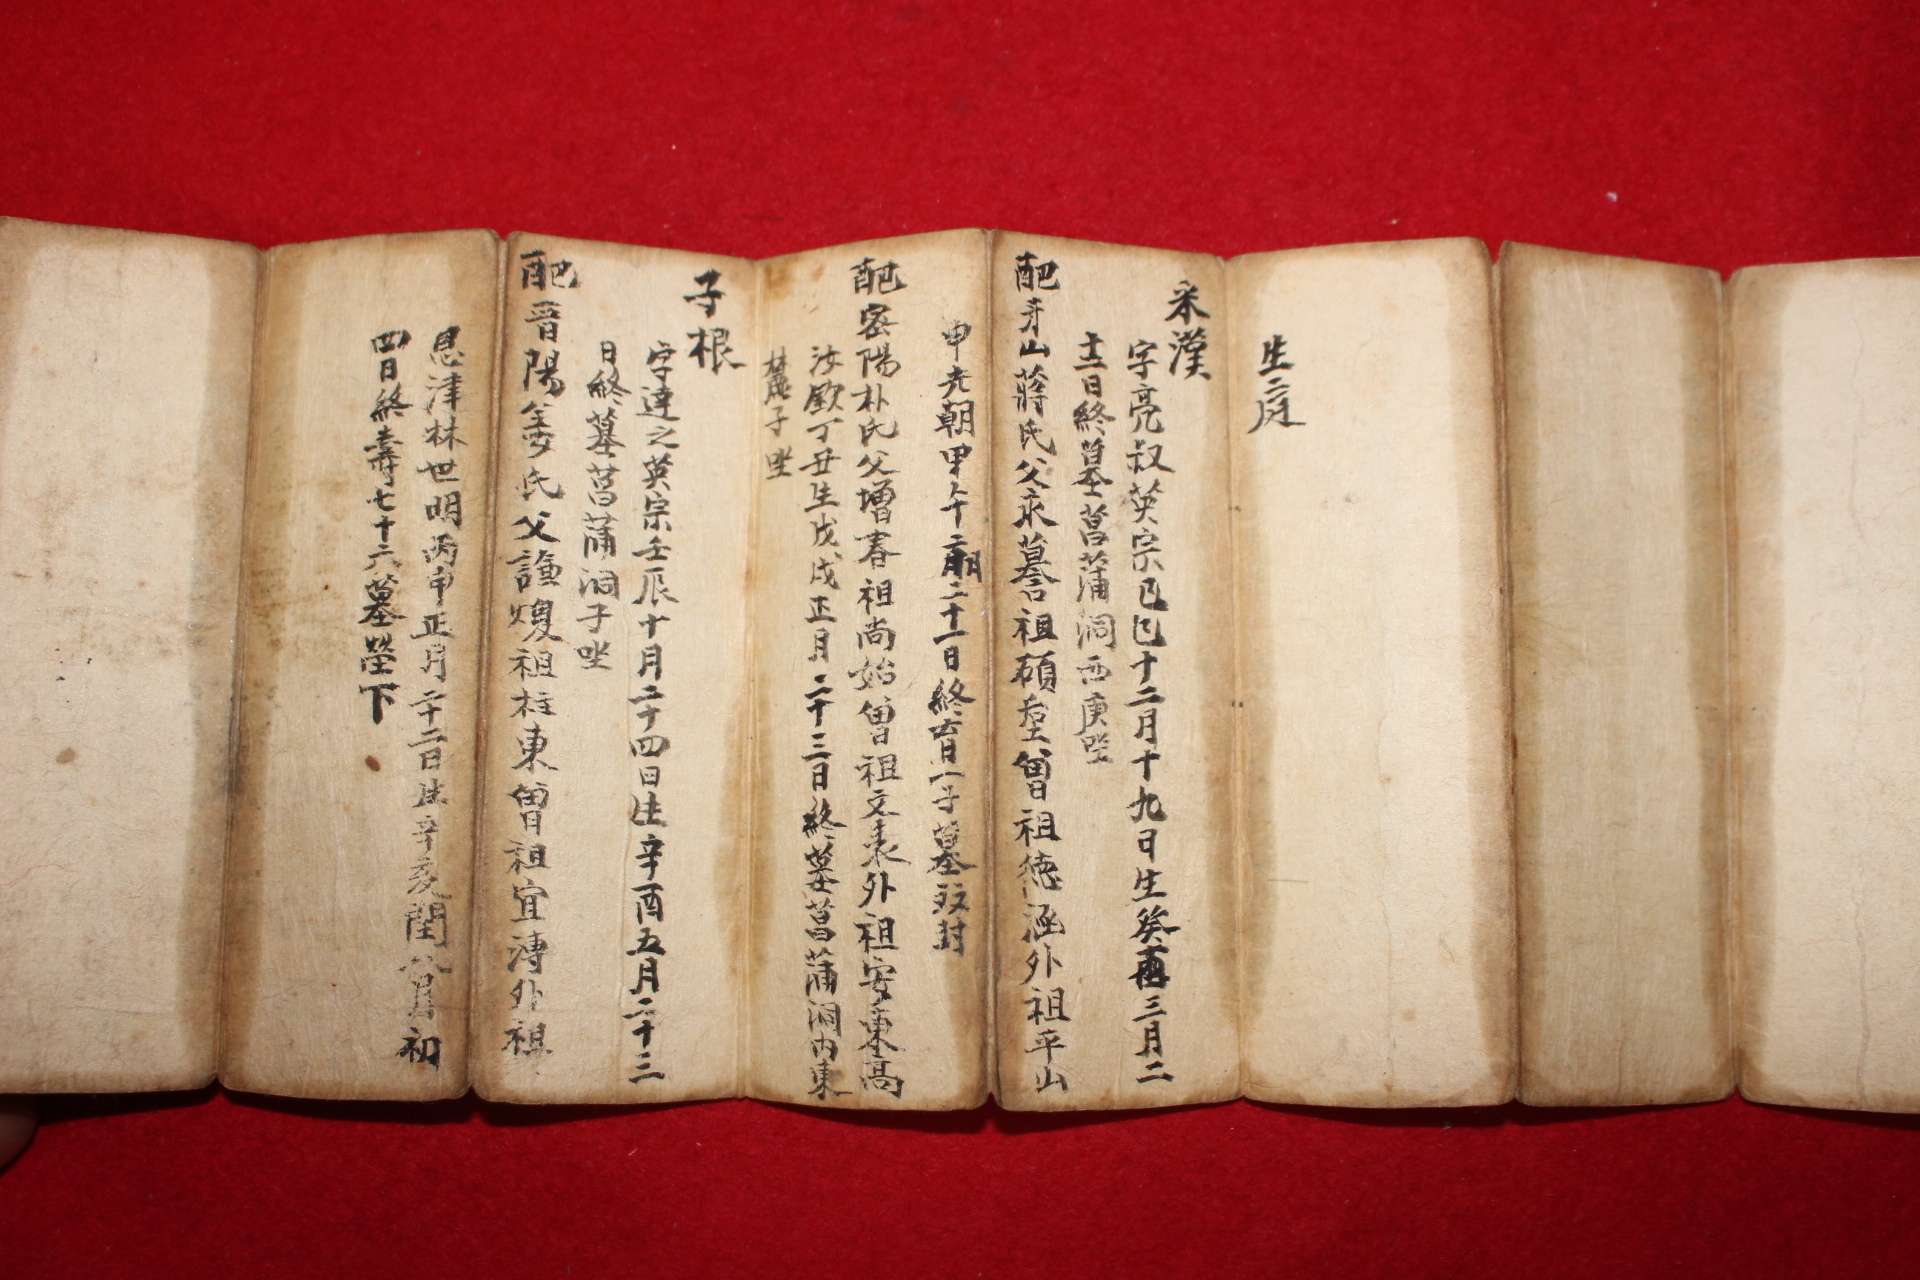 生庭
采漢
字亮叔英宗己巳十二月十九日生癸酉三月二
十二日終墓菖蒲洞西庚坐
配牙山蔣氏父永蓍祖碩奎曾祖德涵外祖平山
申光朝甲午二月二十一日終育一子墓玟封
配密陽朴氏父增春祖尚始曾祖文表外祖安東高
汝欽丁丑生戊戌正月二十三日終墓菖蒲洞內東
麓子坐
子根
字達之英宗壬辰十月二十四日生辛酉五月二十三
日終墓菖蒲洞子坐
配晉陽姜氏父謹煥祖柱東曾祖宜溥外祖
恩津林世明丙申正月二十二日生辛亥閏八月初
四日終壽七十六墓塋下